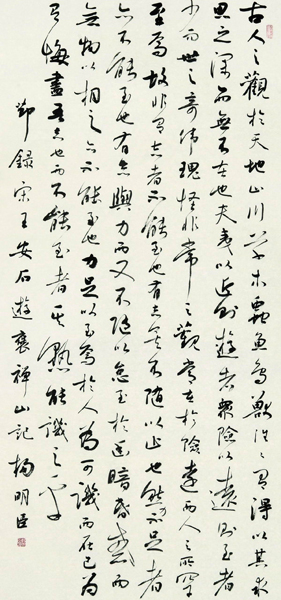 古人之觀於天地山川草木蟲魚鳥獸往往有得以其求
思之深而無不在也夫夷以近則遊者眾險以遠則至者
少而世之奇偉瑰怪非常之觀常在於險遠而人之所罕
至焉故非有志者不能至也有志矣不隨以止也然力不足者
亦不能至也有志與力而又不隨以怠至於幽暗昏惑而
無物以相之亦不能至也力足以至焉於人為可譏而在己為
有悔盡吾志也而不能至者其孰能譏之乎
節錄宋王安石遊褒禪山記楊明臣